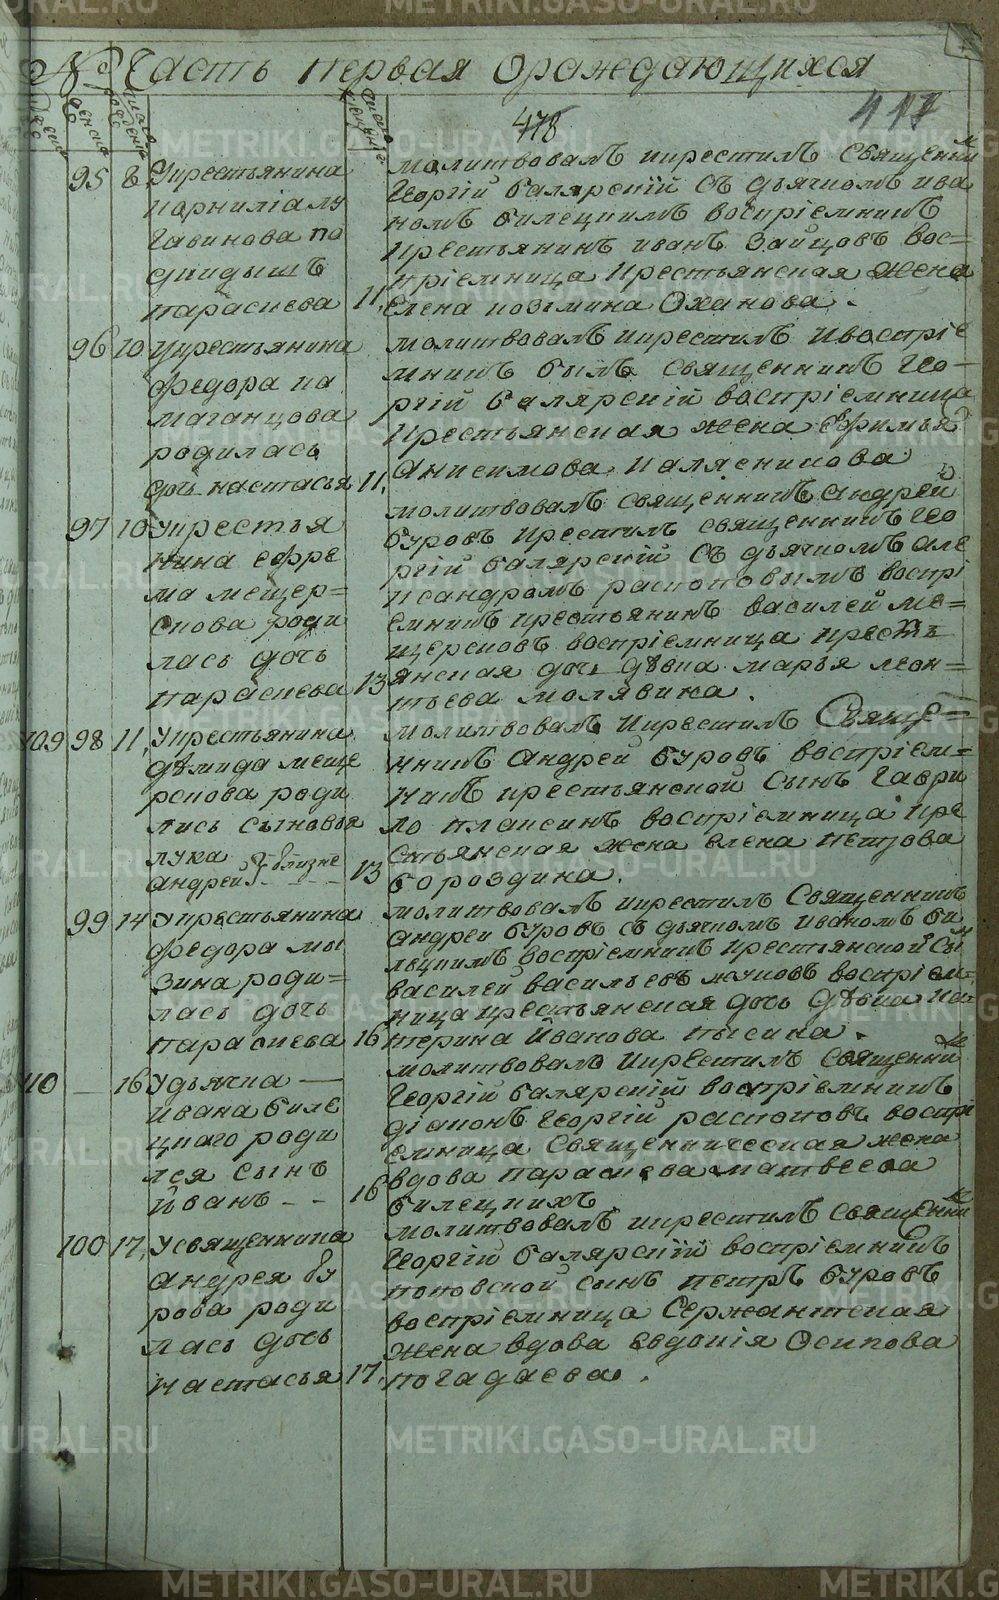 № Часть первая ораждающихся
478 417
95 8, Укрестьянина
Корниліа лу
гавинова по
дкидышъ
параскева 11,
молитвовалъ икрестилъ священни
Георгій балярскій съ дьячкомъ ива
номъ билецкимъ воспріемникъ
крестьянинъ иванъ зайцовъ вос=
пріемница крестьянская жена
Елена козмина Оханова.
96 10 укрестьянина
федора ка
маганцова
родилась
дочь настасья 11,
молитвовалъ икрестилъ ивоспріе
мникъ былъ священникъ Гео-
ргій балярскій воспріемница
крестьянская жена Ефимья
анисимова калясникова
97 10 укрестья
нина ефре
ма мещер=
скова роди
лась дочь
параскева 13
молитвовалъ священникъ андрей
буровъ крестилъ священникъ Гео
ргій балярскій съ дьячкомъ але
ксандромъ распоповымъ воспрі
емникъ крестьянинъ василей ме=
щерсковъ воспріемница кресть
янская дочь дѣвка марья леон=
тьева молявина.
109 98 11, Укрестьянина
дѣмида меще
рскова роди
лись сыновья
лука
андрей близне 13
молитвовалъ икрестилъ Свяще=
нникъ андрей буровъ воспріем=
никъ крестьянской сынъ гаври
ло плаксинъ воспріемница кре
стьянская жена елена петрова
бороздина.
99 14 Укрестьянина
федора мы
зина роди=
лась дочь
параскева 16
молитвовалъ икрестилъ Священникъ
андрей буровъ съ дьячкомъ иваномъ би
льцкимъ воспріемникъ крестьянской сы
василей васильевъ жуковъ воспріем=
ница крестьянская дочь дѣвка ка=
терина йванова пысина.
110 — 16 Удьячка —
йвана биле
цкаго роди
лся сынъ
йванъ - - 16
молитвовалъ икрестилъ священни
Георгій балярскій воспріемникъ
діаконъ георгій распоповъ воспрі
емница священническая жена
вдова параскева матвеева
билецкихъ
100 17, Усвященника
андрея бу
рова роди
лась дочь
настасья 17,
молитвовалъ икрестилъ священни
Георгій балярскій воспріемникъ
поповской сынъ петръ буровъ
воспріемница Сержантская
жена вдова евдокія Осипова
погадаева.